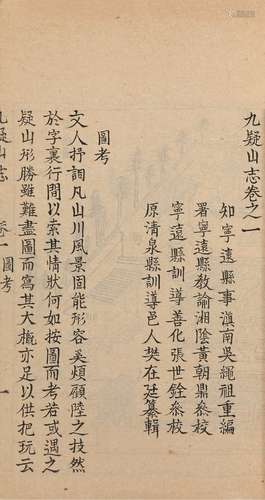 九疑山志卷之一
知寧遠縣事滇南吳繩祖重編
署寧遠縣教諭湘陰黃朝鼎叅校
寧遠縣訓導善化張世銓叅校
原清泉縣訓導邑人樊在廷纂輯
圖考
文人抒詞凡山川風景固能形容奚煩顧陸之技然
於字裏行間以索其情狀何如按圖而考若或遇之
疑山形勝雖難盡圖而寫其大槪亦足以供把玩云
九疑山志 卷一 圖考 一